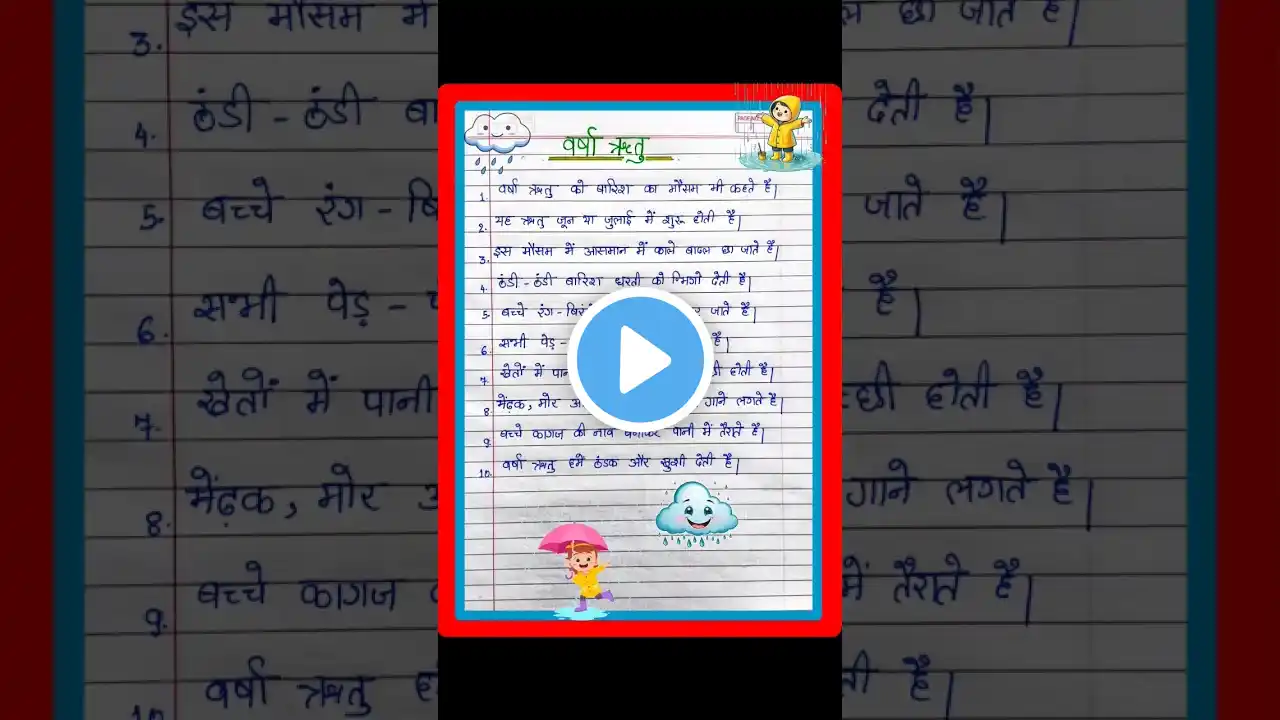 वर्षा ऋतु
1. वर्षा ऋतु को बारिश का मौसम भी कहते है|
2. यह ऋतु जून या जुलाई में शुरू होती है|
3. इस मौसम में आसमान में काले बादल छा जाते है|
4. ठंडी-ठंडी बारिश धरती को भिगो देती है|
5. बच्चे रंग- जाते है|
6. सभी पेड़- है|
7. खेतों में पानी होती है|
8. मेंढ़क, मोर गाने लगते है|
9. बच्चे कागज की नाव बनाकर पानी में तैराते है|
10. वर्षा ऋतु हमें ठंडक और खुशी देती है|